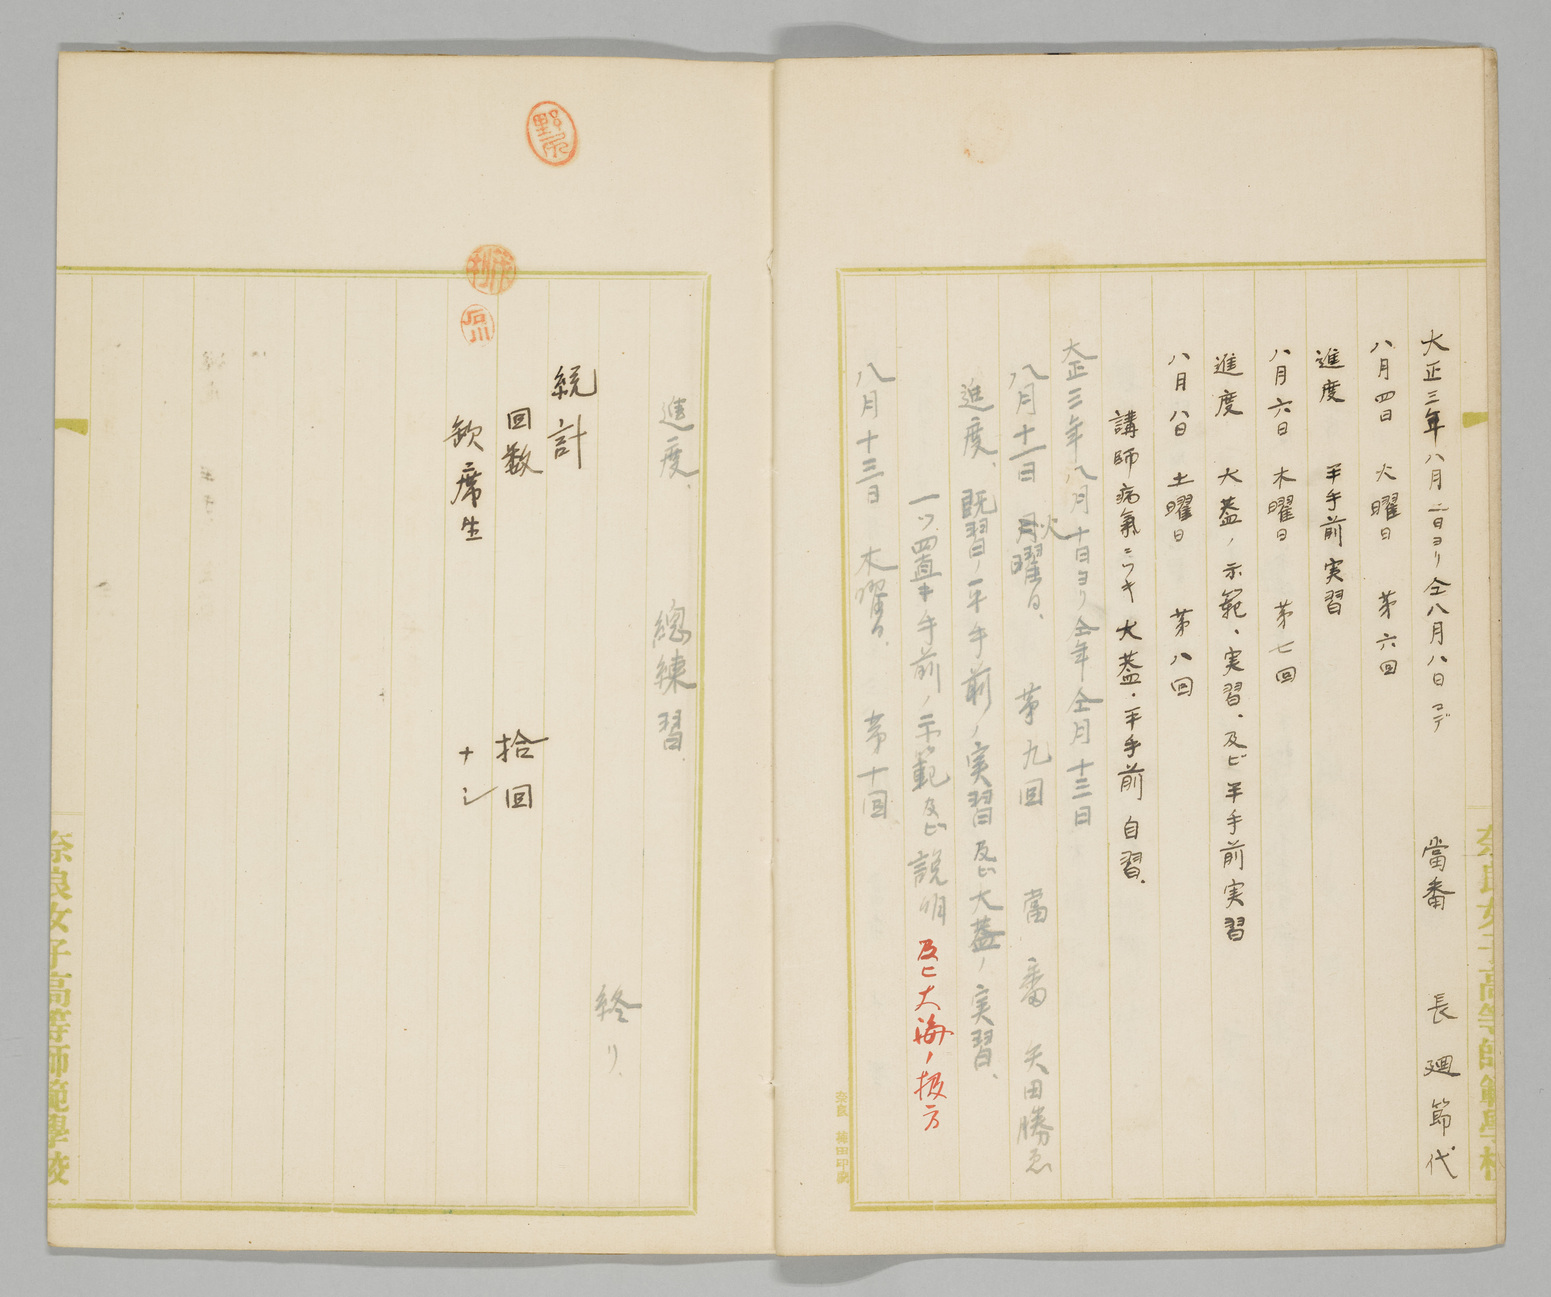 大正三年八月二日ヨリ仝八月八日マデ 當番 長廻節代
八月四日 火曜日 第六回
進度 平手前実習
八月六日 木曜日 第七回
進度 大蓋ノ示範、実習、及ビ平手前実習
八月八日 土曜日 第八回
講師病氣ニツキ大蓋・平手前自習、
大正三年八月十日ヨリ仝年仝月十三日
八月十一日 火曜日、 第九回 當番 天田勝
進度、既習ノ平手前ノ実習及ビ大蓋ノ実習、
一ツ置キ手前ノ示範及ビ説明及ビ大海ノ扱方
八月十三日 木曜日、 第十回
奈良女子高等師範學校
進度、 總練習、
終リ、
統計
回数 拾回
欽席生 ナシ
石川
奈良女子高等師範學校